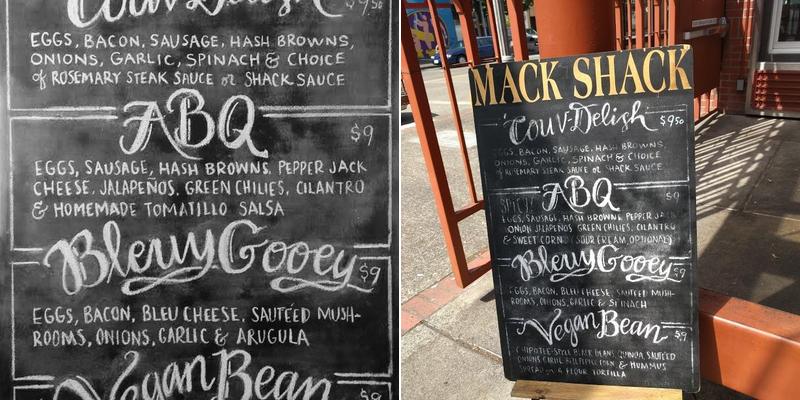 Couv-Delish $9.50
EGGS, BACON, SAUSAGE, HASH BROWNS,
ONIONS, GARLIC, SPINACH & CHOICE
of ROSEMARY STEAK SAUCE or SHACK SAUCE
ABQ $9
EGGS, SAUSAGE, HASH BROWNS, PEPPER JACK
CHEESE, JALAPEÑOS, GREEN CHILIES, CILANTRO
& HOMEMADE TOMATILLO SALSA
Bleuy Gooey $9
EGGS, BACON, BLEU CHEESE, SAUTÉED MUSH-
ROOMS, ONIONS, GARLIC & ARUGULA
Vegan Bean $9
MACK SHACK
Couv-Delish $9.50
EGGS, BACON, SAUSAGE, HASH BROWNS,
ONIONS, GARLIC, SPINACH & CHOICE
of ROSEMARY STEAK SAUCE or SHACK SAUCE
SPICY ABQ $9
EGGS, SAUSAGE, HASH BROWNS, PEPPER JACK
ONION JALAPENOS GREEN CHILIES, CILANTRO
& SWEET CORN (SOUR CREAM OPTIONAL)
Bleuy Gooey $9
EGGS, BACON, BLEU CHEESE, SAUTÉED MUSH-
ROOMS, ONIONS, GARLIC & SPINACH
Vegan Bean $9
CHIPOTLE-STYLE BLACK BEANS, QUINOA, SAUTÉED
ONIONS, GARLIC & HUMMUS
SPREAD A FLOUR TORTILLA